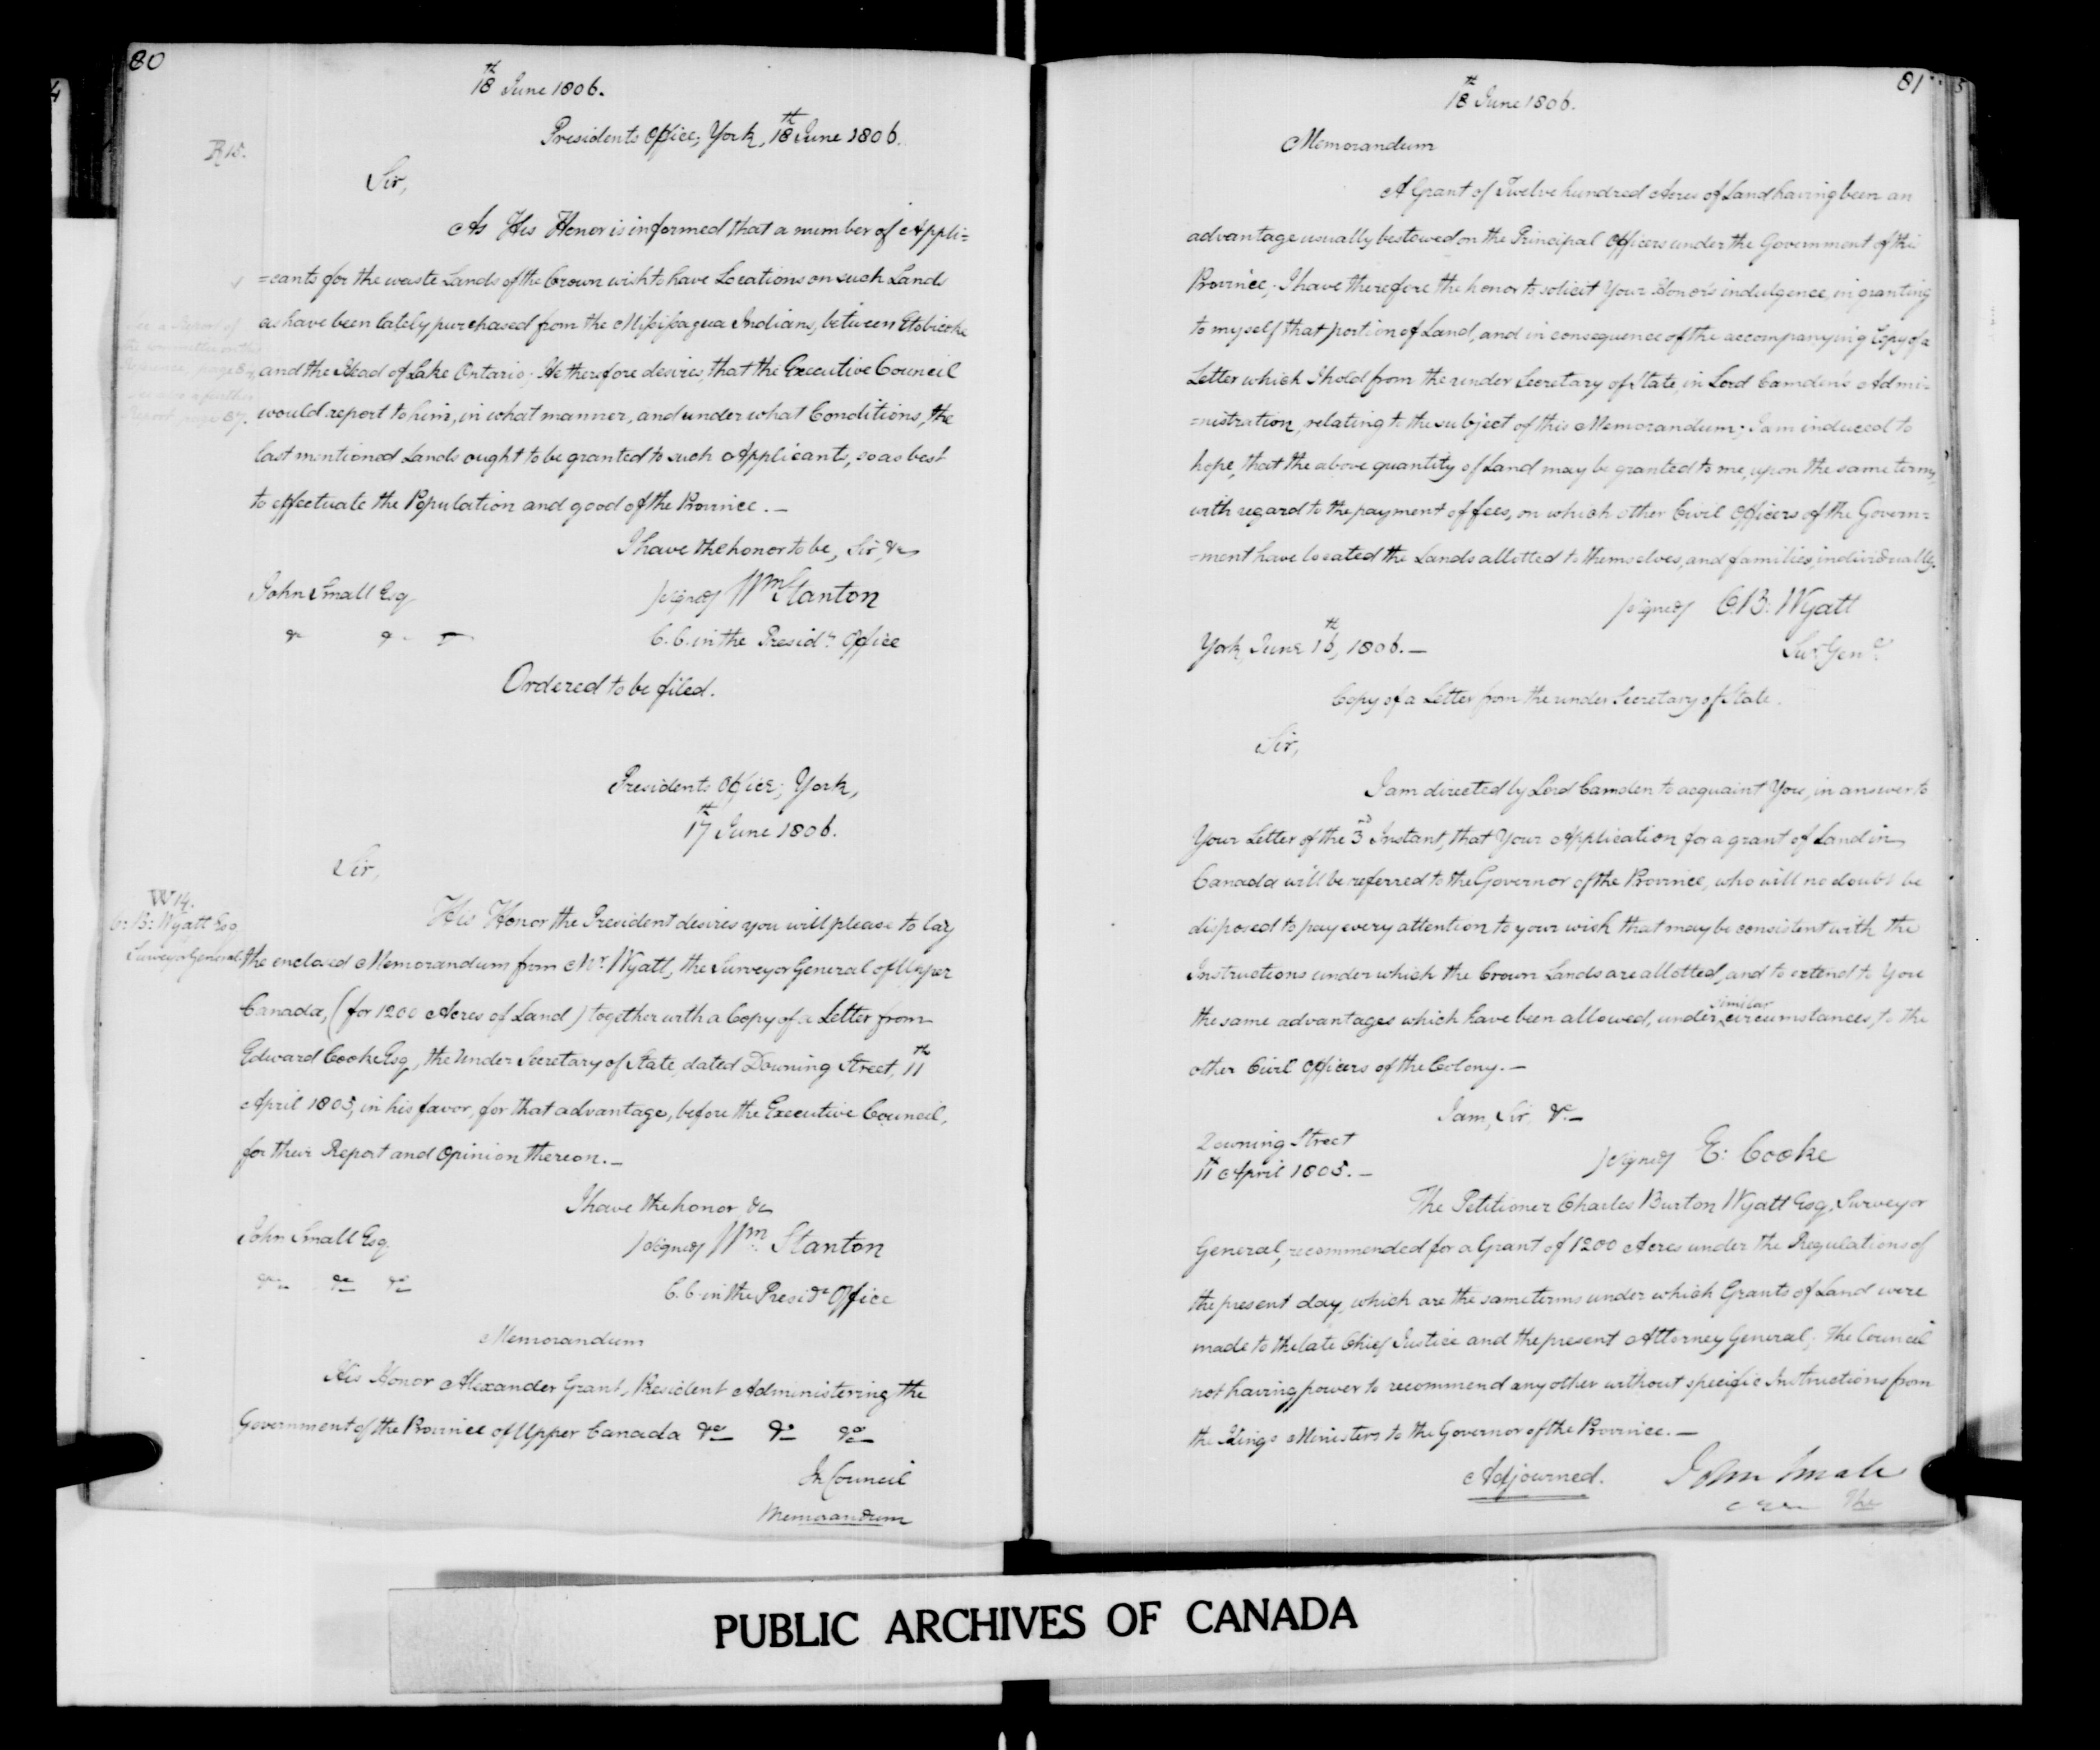 80
18th June 1806.
Presidents Office, York, 18th June 1806.
R 15.
Sir,
As His Honor is informed that a number of Appli=
=cants for the waste Lands of the Crown wish to have Locations on such Lands
as have been lately purchased from the Missisagua Indians, between Etobicoke
and the Head of Lake Ontario; He therefore desires, that the Executive Council
would report to him, in what manner, and under what Conditions, the
last mentioned Lands ought to be granted to such Applicants, so as best
to effectuate the Population and good of the Province. —
see a Report of
the Committee on this
page 84,
see also a further
Report page 87.
I have the honor to be, Sir, &c
John Small Esq
signed Wm Stanton
C.C. in the Presidts Office
Ordered to be filed.
Presidents Office; York,
17th June 1806.
Sir,
W 14.
C: B: Wyatt Esq
Surveyor General.
His Honor the President desires you will please to lay
the enclosed Memorandum from Mr. Wyatt, the Surveyor General of Upper
Canada, (for 1200 Acres of Land) together with a Copy of a Letter from
Edward Cooke Esq, the Under Secretary of State, dated Downing Street, 11th
April 1805, in his favor, for that advantage, before the Executive Council,
for their Report and Opinion thereon. —
I have the honor &c
John Small Esq
&c &c &c
signed Wm Stanton
C.C. in the Presidts Office
Memorandum
His Honor Alexander Grant, President Administering the
Government of the Province of Upper Canada &c &c &c
In Council
Memorandum
81
18th June 1806.
Memorandum
A Grant of Twelve hundred Acres of Land having been an
advantage usually bestowed on the Principal Officers under the Government of this
Province; I have therefore the honor to solicit Your Honor's indulgence, in granting
to myself that portion of Land, and in consequence of the accompanying Copy of a
Letter which I hold from the under Secretary of State, in Lord Camden's Admi=
=nistration, relating to the subject of this Memorandum; I am induced to
hope, that the above quantity of Land may be granted to me, upon the same terms,
with regard to the payment of fees, on which other Civil Officers of the Govern=
=ment have located the Lands allotted to themselves, and families, individually.
signed C.B: Wyatt
York, June 16th, 1806. —
Surr Genl
Copy of a Letter from the under Secretary of State.
Sir,
I am directed by Lord Camden to acquaint You, in answer to
Your Letter of the 3rd Instant, that Your Application for a grant of Land in
Canada will be referred to the Governor of the Province, who will no doubt be
disposed to pay every attention to your wish that may be consistent with the
Instructions under which the Crown Lands are allotted, and to extend to You
the same advantages which have been allowed, under similar circumstances, to the
other Civil Officers of the Colony. —
I am, Sir, &c —
Downing Street
11th April 1805. —
signed E: Cooke
The Petitioner Charles Burton Wyatt Esq, Surveyor
General, recommended for a Grant of 1200 Acres under the Regulations of
the present day, which are the same terms under which Grants of Land were
made to the late Chief Justice and the present Attorney General; the Council
not having power to recommend any other without specific Instructions from
the Kings Ministers to the Governor of the Province. —
Adjourned.
John Small
The
PUBLIC ARCHIVES OF CANADA